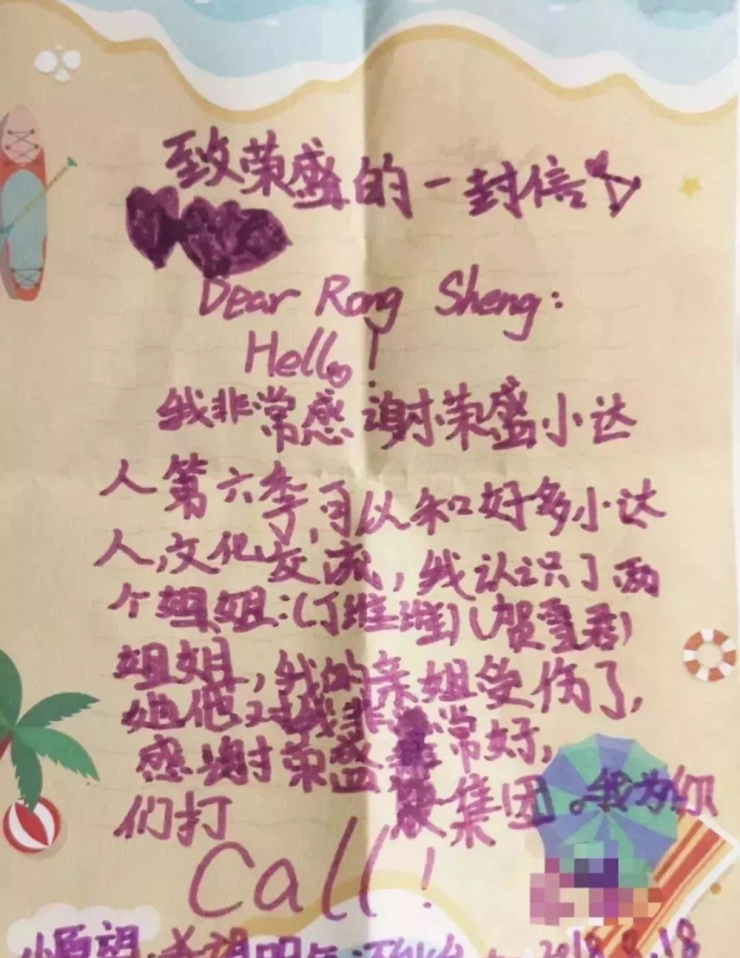 致荣盛的一封信
Dear Rong Sheng:
Hello!
我非常感谢荣盛小达
人第六季,可以和好多小达
人,文化交流,我认识了两
个姐姐:(丁维维)(贺雪君)
姐姐,我的亲姐受伤了,
她他对我非常好,
感谢荣盛
集团。我为你
们打
Call!
小愿望:希望明年
2018.8.18